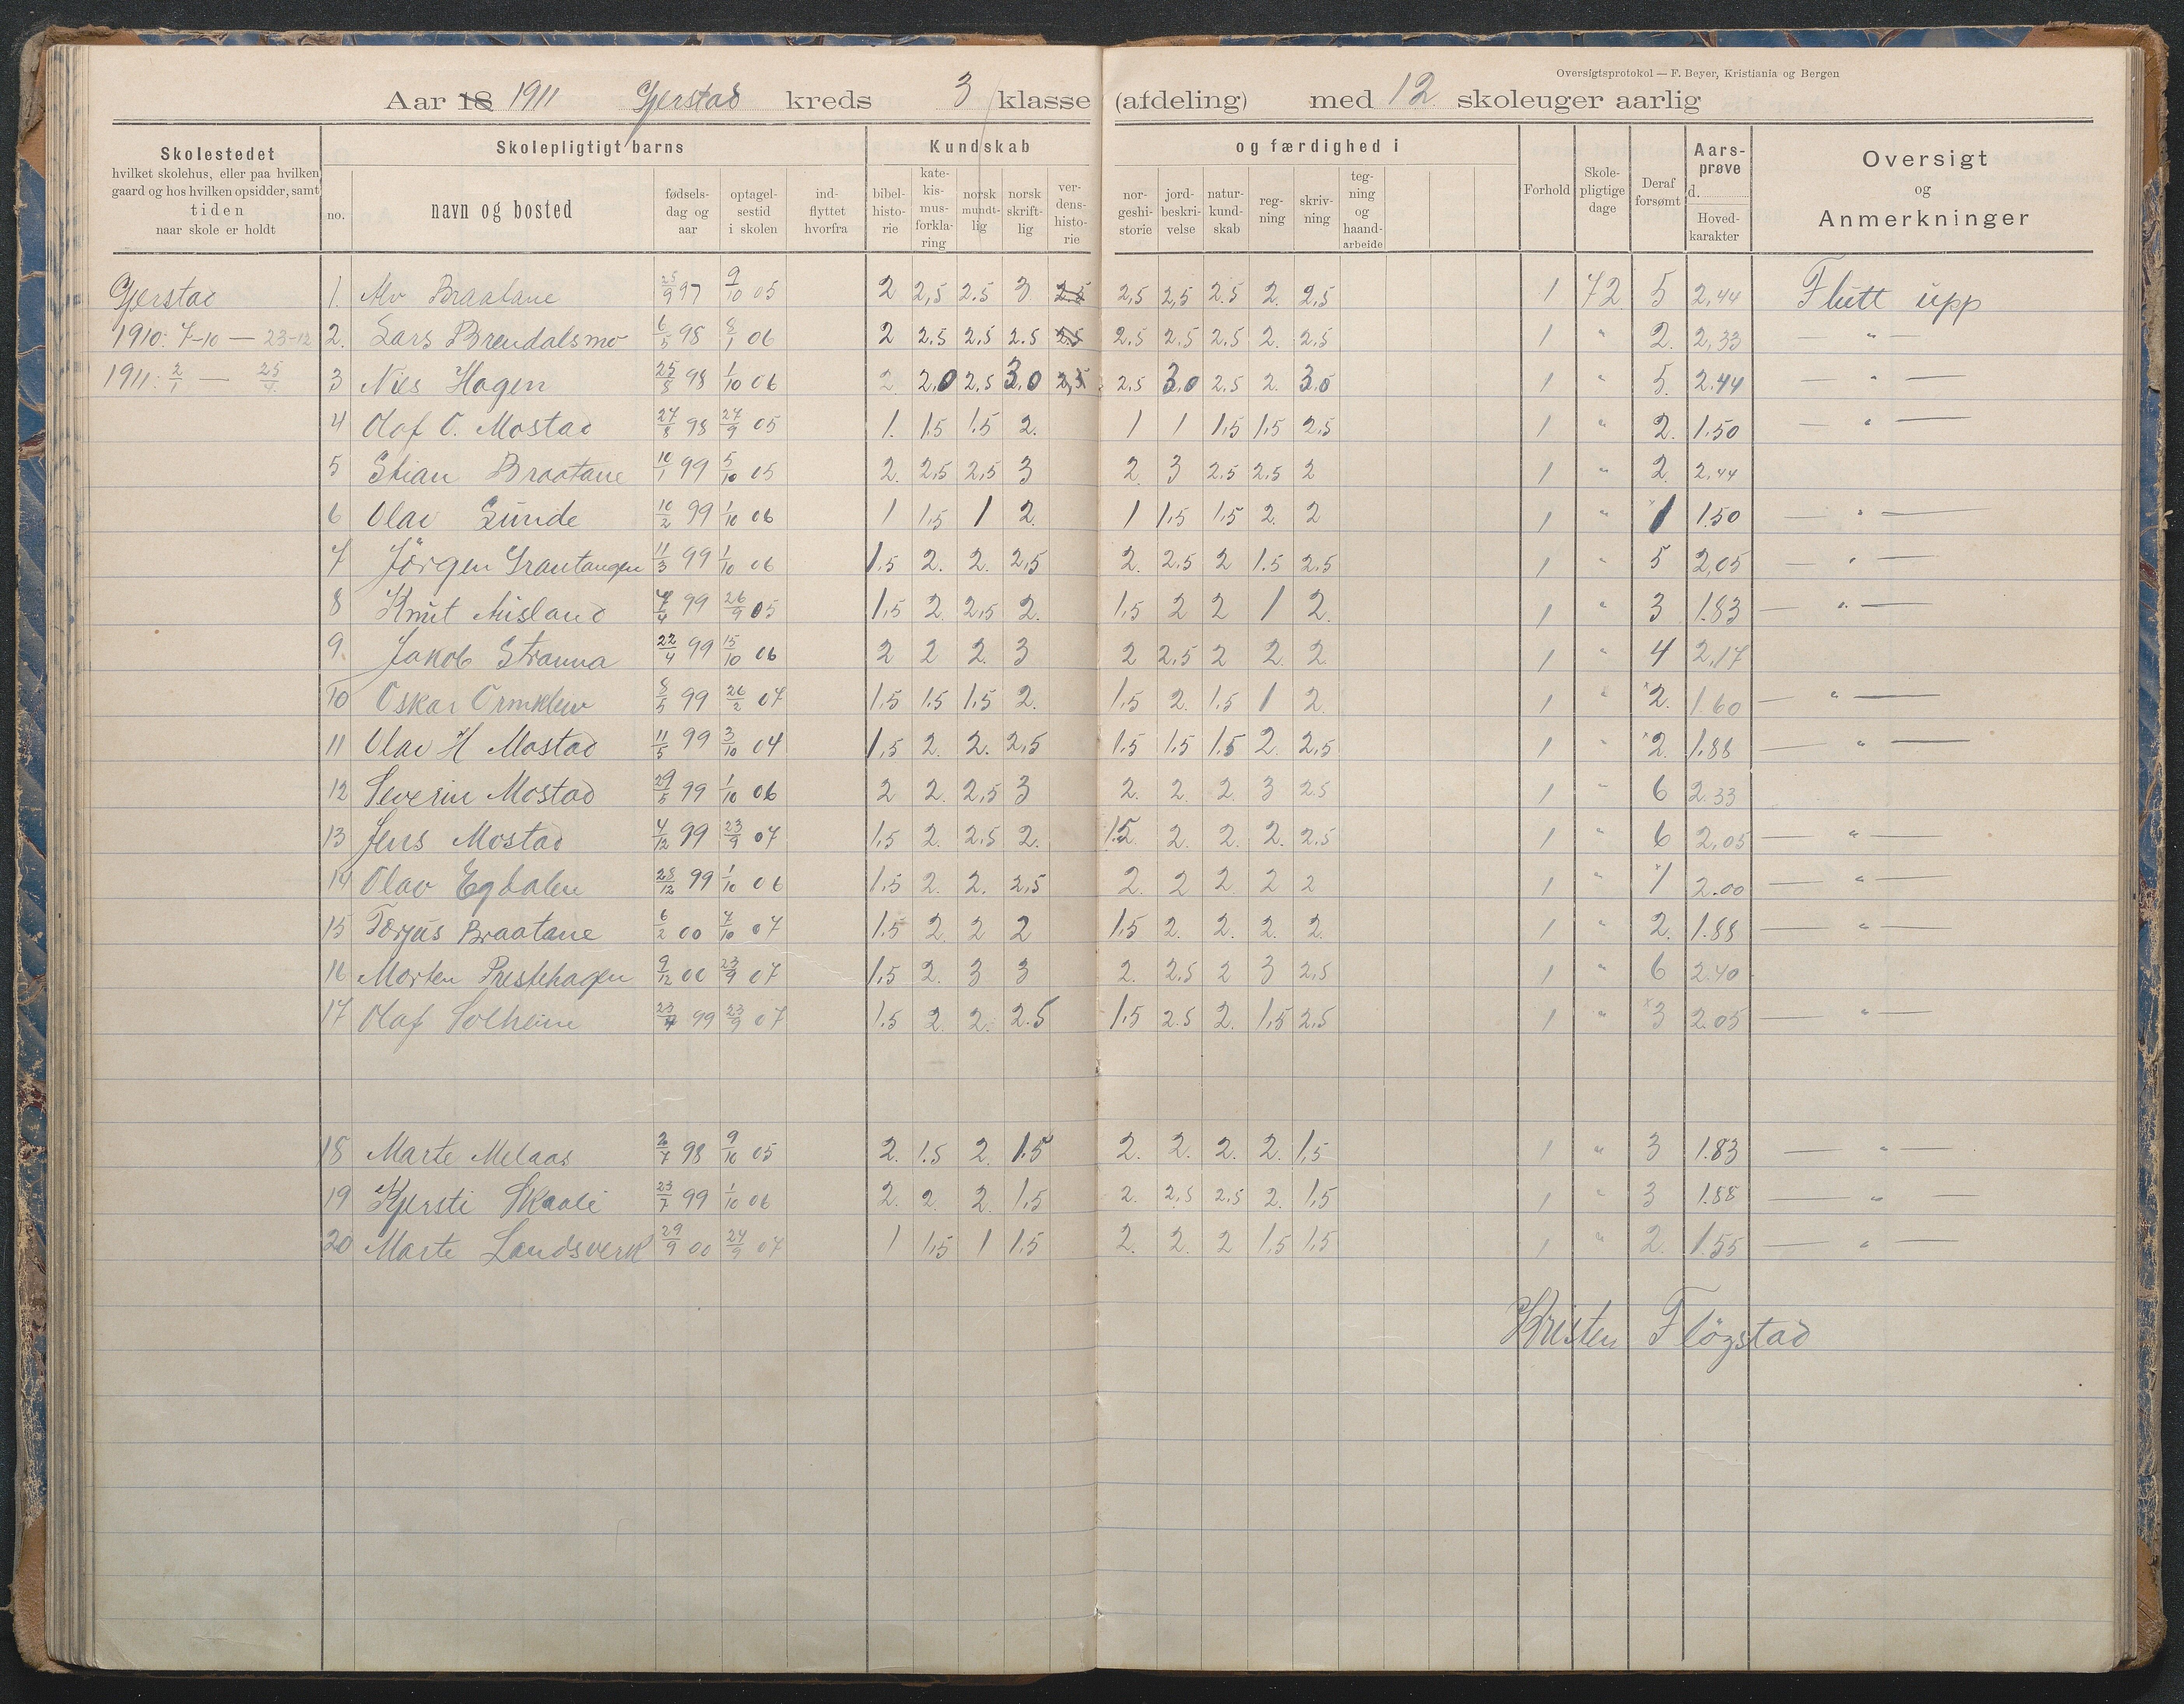 Oversigtsprotokol — F. Beyer, Kristiania og Bergen
Aar 18 1911 Gjerstad kreds 3 klasse (afdeling) med 12 skoleuger aarlig
Skolestedet hvilket skolehus, eller paa hvilken gaard og hos hvilken opsidder, samt tiden naar skole er holdt
Skolepligtigt barns
no. navn og bosted fødsels-dag og aar optagel-sestid i skolen ind-flyttet hvorfra
Kundskab og færdighed i
bibel-histo-rie kate-kis-mus-forkla-ring norsk mundt-lig norsk skrift-lig ver-dens-histo-rie nor-geshi-storie jord-beskri-velse natur-kund-skab reg-ning skriv-ning teg-ning og haand-arbeide
Forhold Skole-pligtige dage Deraf forsømt Aars-prøve d. Hoved-karakter
Oversigt og Anmerkninger
Gjerstad 1. Alv Braatane 25/9 97 9/10 05 2 2,5 2.5 3 2.5 2,5 2,5 2.5 2. 2,5 1 72 5 2,44 Flutt upp
1910: 7-10 — 23-12 2. Lars Brendalsmo 6/5 98 8/1 06 2 2.5 2.5 2.5 2.5 2.5 2.5 2,5 2. 2.5 1 " 2. 2,33 — " —
1911: 2/1 — 25/4. 3 Nils Hagen 25/5 98 1/10 06 2 2,0 2,5 3,0 2,5 2,5 3,0 2,5 2. 3.0 1 " 5. 2.44 — " —
4 Olaf O. Mostad 27/8 98 27/9 05 1. 1.5 1.5 2. 1 1 1,5 1,5 2,5 1 " 2. 1.50 — " —
5 Stian Braatane 10/1 99 5/10 05 2. 2,5 2,5 3 2. 3 2.5 2.5 2 1 " 2. 2,44
6 Olav Sunde 10/2 99 1/10 06 1 1,5 1 2. 1 1,5 1,5 2. 2 1 " x1 1.50 — " —
7 Jörgen Grautangen 11/3 99 1/10 06 1.5 2. 2. 2,5 2. 2.5 2 1.5 2.5 1 " 5 2,05 — " —
8 Knut Misland 4/4 99 26/9 05 1,5 2 2,5 2. 1,5 2 2 1 2. 1 " 3 1.83 — " —
9. Jakob Stranna 22/4 99 15/10 06 2 2 2. 3 2 2.5 2 2. 2. 1 " 4 2,17
10 Oskar Ormklew 8/5 99 26/2 07 1.5 1.5 1,5 2. 1,5 2. 1.5 1 2. 1 " x2. 1.60 — " —
11 Olav H Mostad 11/5 99 3/10 04 1,5 2. 2. 2,5 1.5 1.5 1.5 2. 2,5 1 " x2. 1.88 — " —
12 Severin Mostad 29/5 99 1/10 06 2 2. 2,5 3 2. 2. 2. 3 2.5 1 " 6 2.33
13 Jens Mostad 4/12 99 23/9 07 1.5 2. 2.5 2. 1.5. 2. 2. 2. 2.5 1 " 6 2,05 — " —
14 Olav Egdalen 28/12 99 1/10 06 1.5 2. 2. 2,5 2. 2 2. 2 2 1 " x1 2.00 — " —
15 Torjus Braatane 6/2 00 7/10 07 1.5 2. 2 2 1.5 2. 2. 2. 2. 1 " 2. 1.88 — " —
16 Morten Prestehagen 9/12 00 23/9 07 1.5 2. 3 3 2. 2.5 2 3 2,5 1 " 6 2.40
17 Olaf Solheim 23/7 99 23/9 07 1.5 2. 2. 2.5 1.5 2.5 2. 1,5 2,5 1 " x3 2.05 — " —
18 Marte Melaas 2/7 98 9/10 05 2. 1.5 2. 1.5 2. 2. 2. 2. 1,5 1 " 3 1.83 — " —
19 Kjersti Skaali 23/7 99 1/10 06 2. 2. 2. 1,5 2. 2,5 2,5 2. 1,5 1 " 3 1.88 — " —
20 Marte Landsverk 29/9 00 24/9 07 1 1,5 1 1.5 2. 2. 2 1,5 1.5 1 " 2. 1.55 — " —
Kristen Flögstad